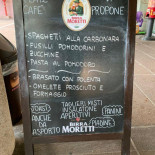 CAFE' PROPONE
BIRRA
MORETTI
SPAGHETTI ALLA CARBONARA
FUSILLI POMODORINI E
ZUCCHINE
PASTA AL POMODORO
BRASATO CON POLENTA
OMELETTE PROSCIUTTO E
FORMAGGIO
TAGLIERI MISTI
INSALATONE
APERITIVI
PANINI
PIADINE
ANCHE
DA
ASPORTO
BIRRA
MORETTI